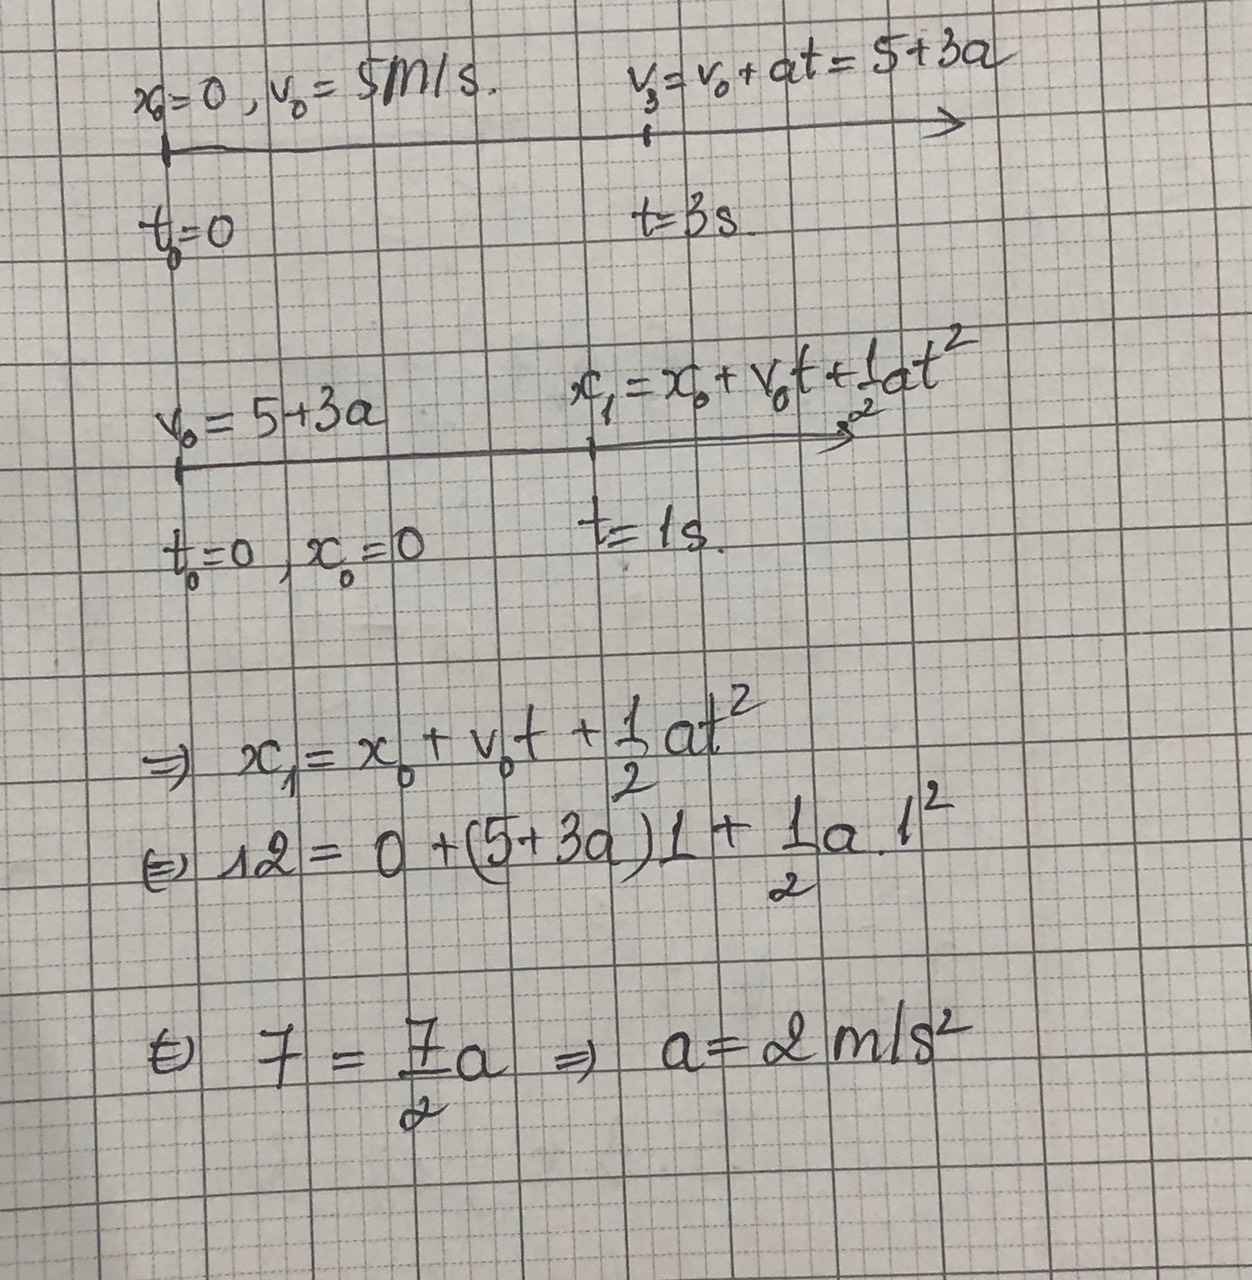 x₀=0, v₀=5m/s. v₃=v₀+at=5+3a
t₀=0 t=3s.
v₀=5+3a x₁=x₀+v₀t+1/2at²
t₀=0, x₀=0 t=1s.
⇒ x₁=x₀+v₀t+1/2at²
⇔ 12=0+(5+3a)1+1/2a.1²
⇔ 7=7/2a ⇒ a=2m/s²